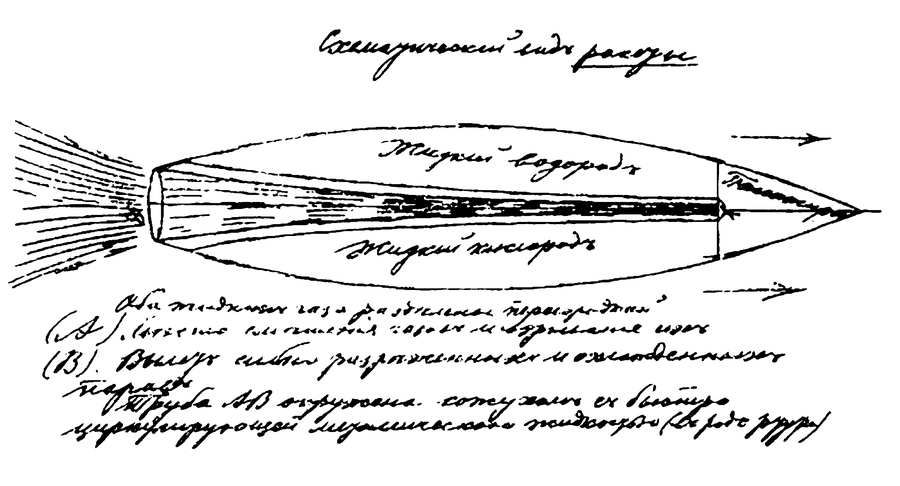 Схематический видъ ракеты
Жидкий водородъ
Жидкий кислородъ
Оба жидкихъ газа раздѣлены перегородкой
(А). Мѣсто смѣшенія газовъ и взрыванія ихъ
(В). Вылетъ сильно разрѣженныхъ и охлажденныхъ
паровъ
Труба АВ окружена кожухомъ съ быстро
циркулирующей жидкостью (въ родѣ ртути)